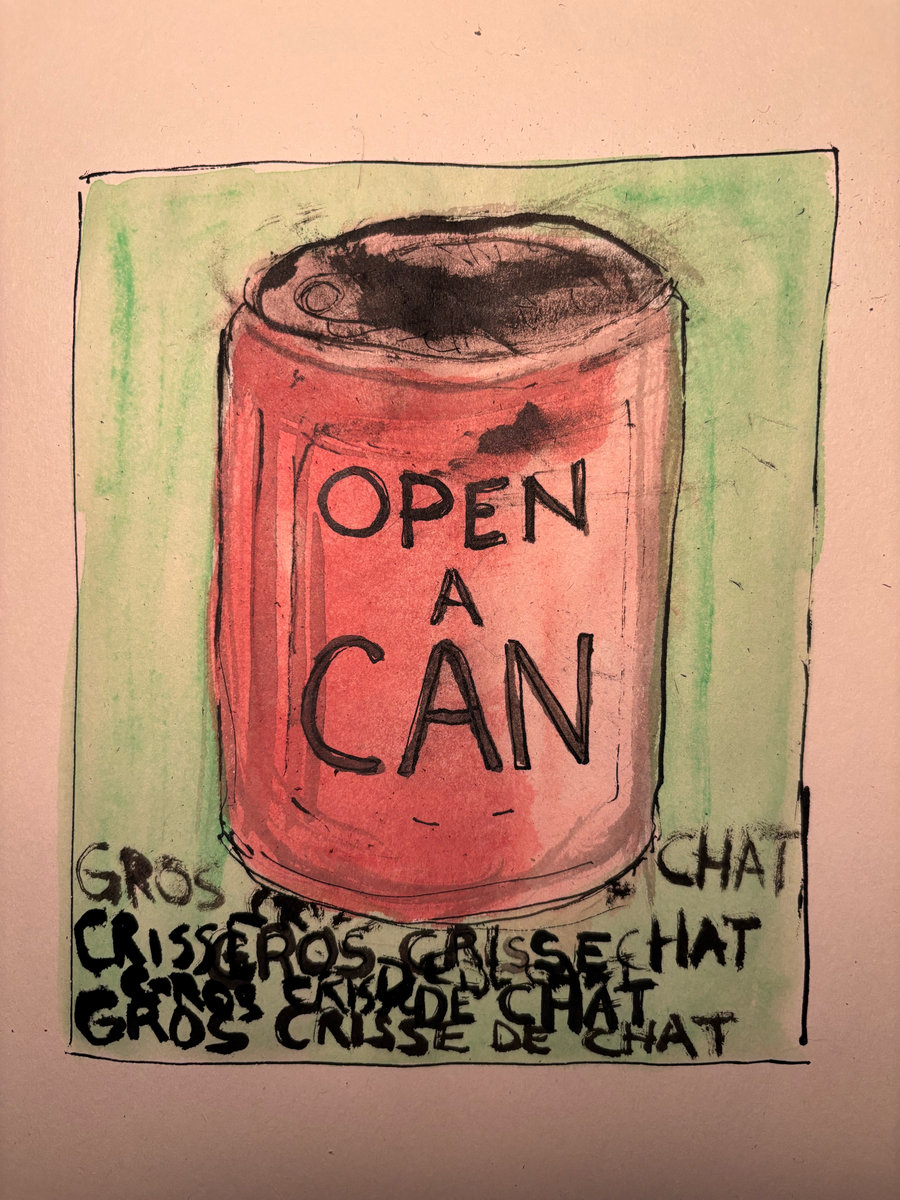 OPEN
A
CAN
GROS CHAT
CRISSE GROS CRISSE CHAT
GROS DE CHAT
GROS CRISSE DE CHAT